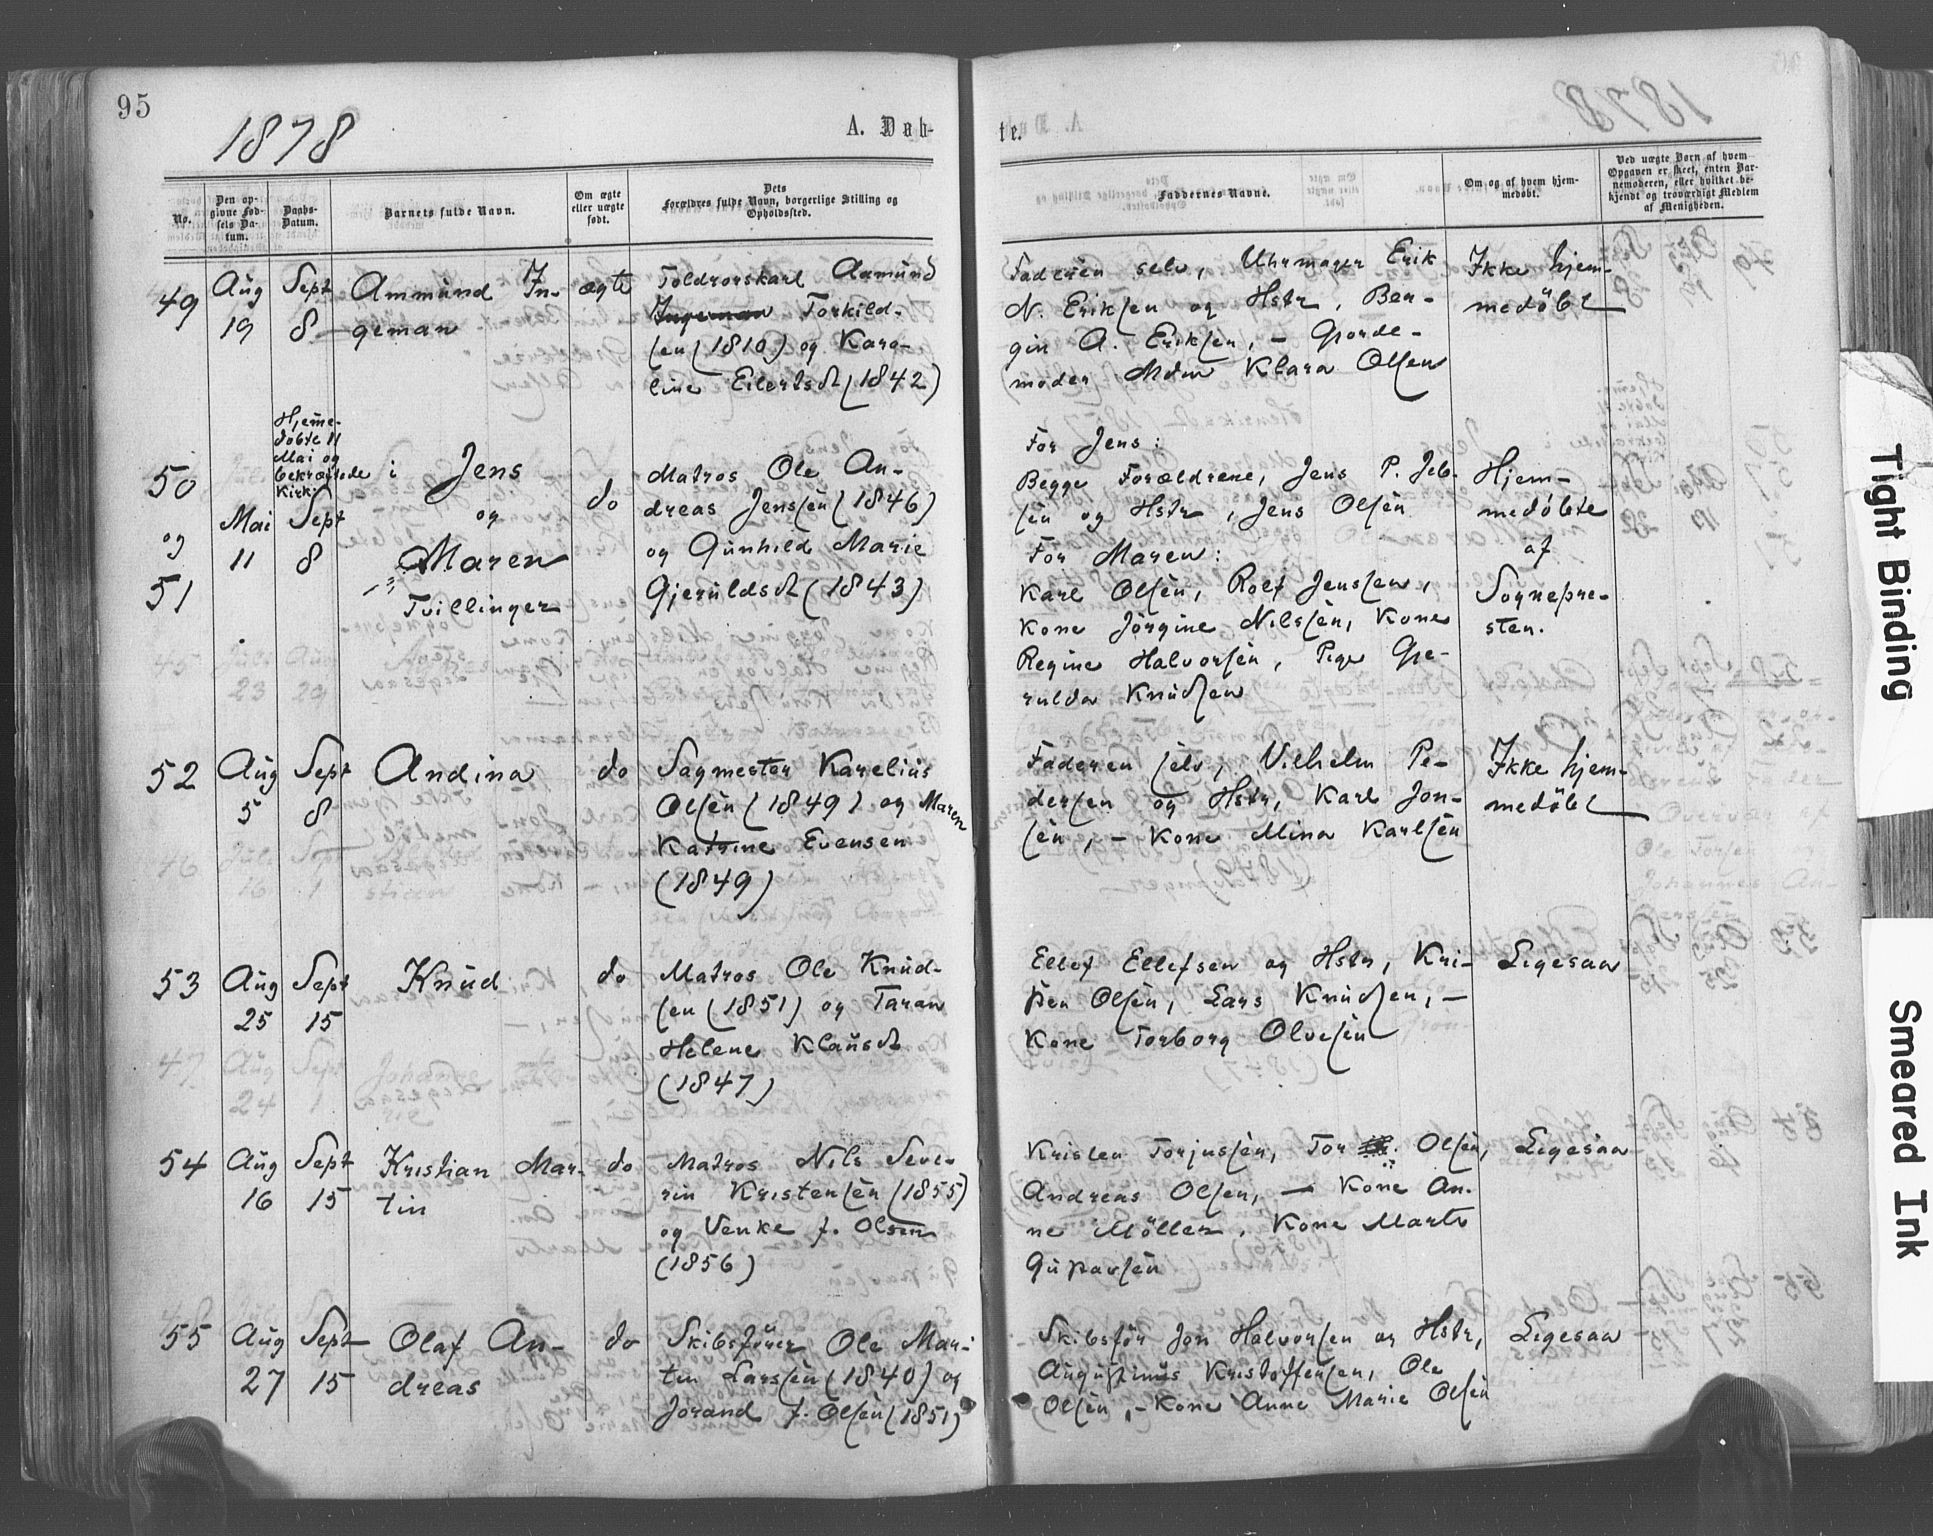 95
1878
A. Døb-
te.
No.
Den op-
givne Fød-
sels Da-
tum.
Daabs-
Datum.
Barnets fulde Navn.
Om ægte
eller uægte
født.
Dets
Forældres fulde Navn, borgerlige Stilling og
Opholdssted.
Faddernes Navne.
Om og af hvem hjem-
medøbt.
Ved uægte Børn af hvem
Opgaven er skeet, enten Bar-
nemoderen, eller hvilket be-
kjendt og troværdigt Medlem
af Menigheden.
49
Aug
19
Sept
8
Ammund In-
geman
ægte
Toldrorskarl Aamund
Ingeman Torkild-
sen (1810) og Karo-
line Eilertsd (1842)
Faderen selv, Uhrmager Erik
N. Eriksen og Hstr, Ber-
gin A. Eriksen, - Gjorde-
moder Mdm Klara Olsen
Ikke hjem-
medøbt
50
og
51
Mai
11
Hjemme-
døbte 11
Mai og
bekræftede i
Kirk:
Sept
8
Jens
og
Maren
Tvillinger
do
Matros Ole An-
dreas Jenssen (1846)
og Gunhild Marie
Gjeruldsd (1843)
For Jens:
Begge Forældrene, Jens P. Jeb-
sen og Hstr, Jens Olsen
For Maren:
Karl Olsen, Rolf Jenssen,
Kone Jørgine Nilssen, Kone
Regine Halvorsen, Pige Gje-
rulda Knudsen
Hjem-
medøbte
af
Sognepre-
sten.
52
Aug
5
Sept
8
Andina
do
Sagmester Karelius
Olsen (1849) og Maren
Katrine Evensen
(1849)
Faderen selv, Vilhelm Pe-
dersen og Hstr, Karl Jon-
sen, - Kone Mina Karlsen
Ikke hjem-
medøbt
53
Aug
25
Sept
15
Knud
do
Matros Ole Knud-
sen (1851) og Taran
Helene Klausd
(1847)
Ellef Ellefsen og Hstr, Kri-
sten Olsen, Lars Knudsen, -
Kone Torborg Olvesen
Ligesaa
54
Aug
16
Sept
15
Kristian Mar-
tin
do
Matros Nils Seve-
rin Kristensen (1855)
og Venke f. Olsen
(1856)
Kristen Torjussen, Tor Olsen,
Andreas Olsen, - Kone An-
ne Møller, Kone Marte
Gustavsen
Ligesaa
55
Aug
27
Sept
15
Olaf An-
dreas
do
Skibsfører Ole Mar-
tin Larssen (1840) og
Jørand f. Olsen (1851)
Skibsfør Jon Halvorsen og Hstr,
Augustinus Kristoffersen, Ole
Olsen, - Kone Anne Marie Olsen
Ligesaa
Tight Binding
Smeared Ink